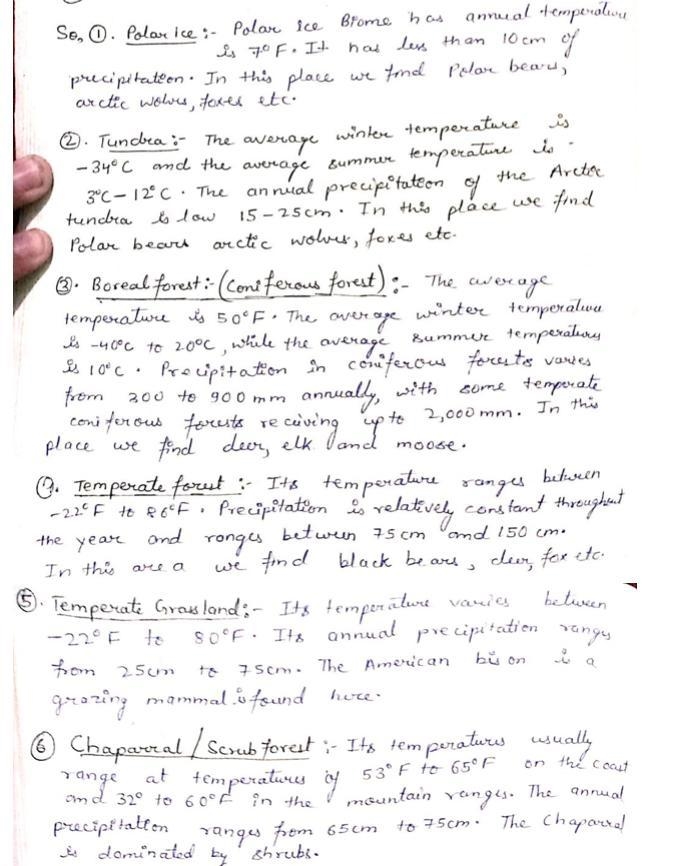 So, ①. Polar ice :- Polar ice Biome has annual temperature
is 7°F. It has less than 10cm of
precipitation. In this place we find Polar bears,
arctic wolves, foxes etc.
②. Tundra :- The average winter temperature is
-34°C and the average summer temperature is
3°C-12°C. The annual precipitation of the Arctic
tundra is low 15-25cm. In this place we find
Polar bears arctic wolves, foxes etc.
③. Boreal forest :- (Coniferous forest) :- The average
temperature is 50°F. The average winter temperature
is -40°C to 20°C, while the average summer temperature
is 10°C. Precipitation in coniferous forests varies
from 300 to 900 mm annually, with some temperate
coniferous forests receiving up to 2,000 mm. In this
place we find deer, elk and moose.
Temperate forest :- Its temperature ranges between
-22°F to 86°F. Precipitation is relatively constant throughout
the year and ranges between 75cm and 150 cm.
In this area we find black bears, deer, fox etc.
⑤. Temperate Grassland :- Its temperature varies between
-22°F to 80°F. Its annual precipitation ranges
from 25cm to 75cm. The American bison is a
grazing mammal is found here.
⑥ Chaparral / Scrub forest :- Its temperatures usually
range at temperatures of 53°F to 65°F on the coast
and 32° to 60°F in the mountain ranges. The annual
precipitation ranges from 65cm to 75cm. The Chaparral
is dominated by shrubs.